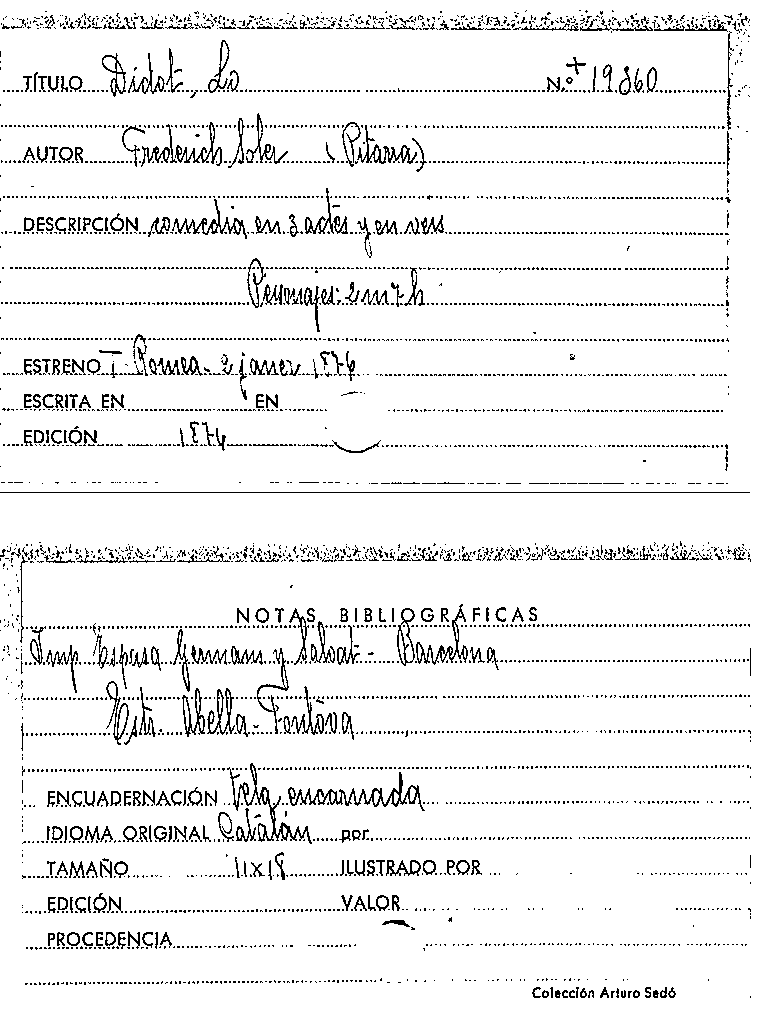 TÍTULO Didot, Lo N.º + 19860
AUTOR Frederich Soler (Pitarra)
DESCRIPCIÓN comedia en 3 actes y en vers
Personajes: 2 m 7 h
ESTRENO T. Romea - 2 janer 1876
ESCRITA EN EN
EDICIÓN 1876
NOTAS BIBLIOGRÁFICAS
Imp Espasa germans y Salvat - Barcelona
Estr. Abella - Fontova
ENCUADERNACIÓN tela encarnada
IDIOMA ORIGINAL Catalán por
TAMAÑO 11x18 ILUSTRADO POR
EDICIÓN VALOR
PROCEDENCIA
Colección Arturo Sedó